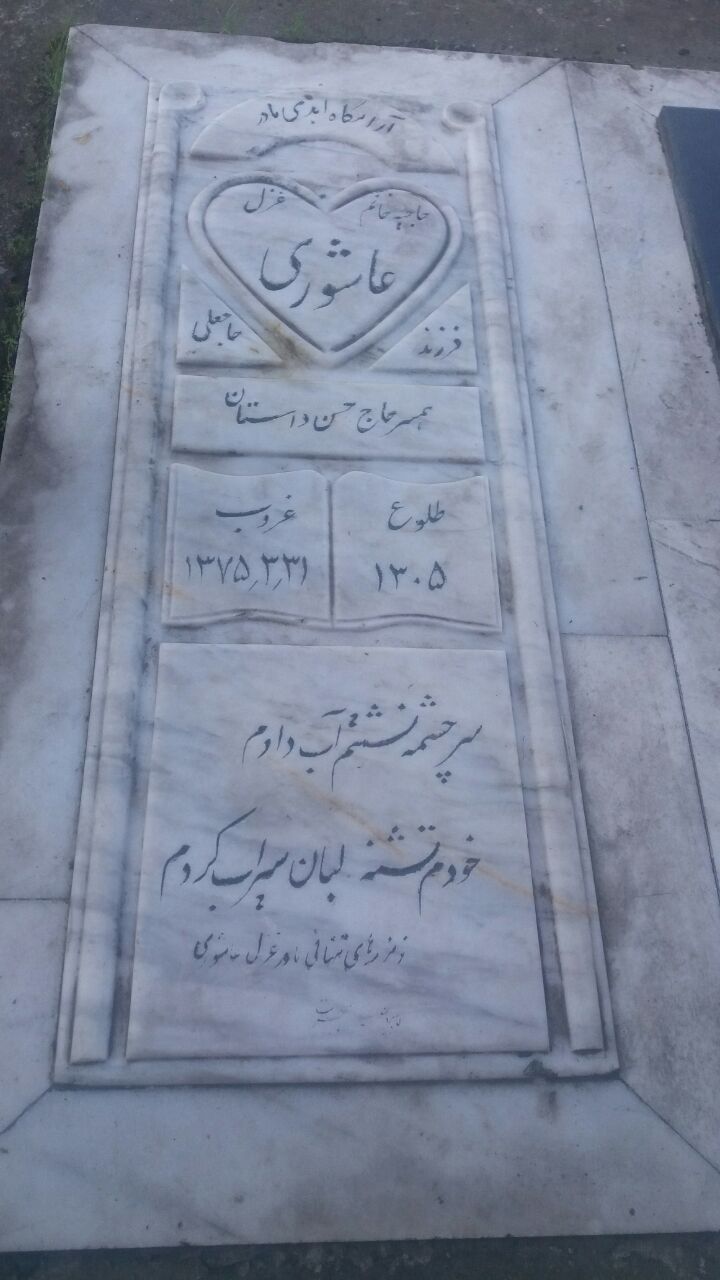 آرامگاه ابدی مادر
حاجیه خانم غزل
عاشوری
فرزند حاجعلی
همسر حاج حسن داستان
طلوع
۱۳۰۵
غروب
۱۳۷۵٫۳٫۳۱
سر چشمه نشستم آب دادم
خودم تشنه لبان سیراب کردم
زمزمه‌های تنهائی مادر غزل عاشوری